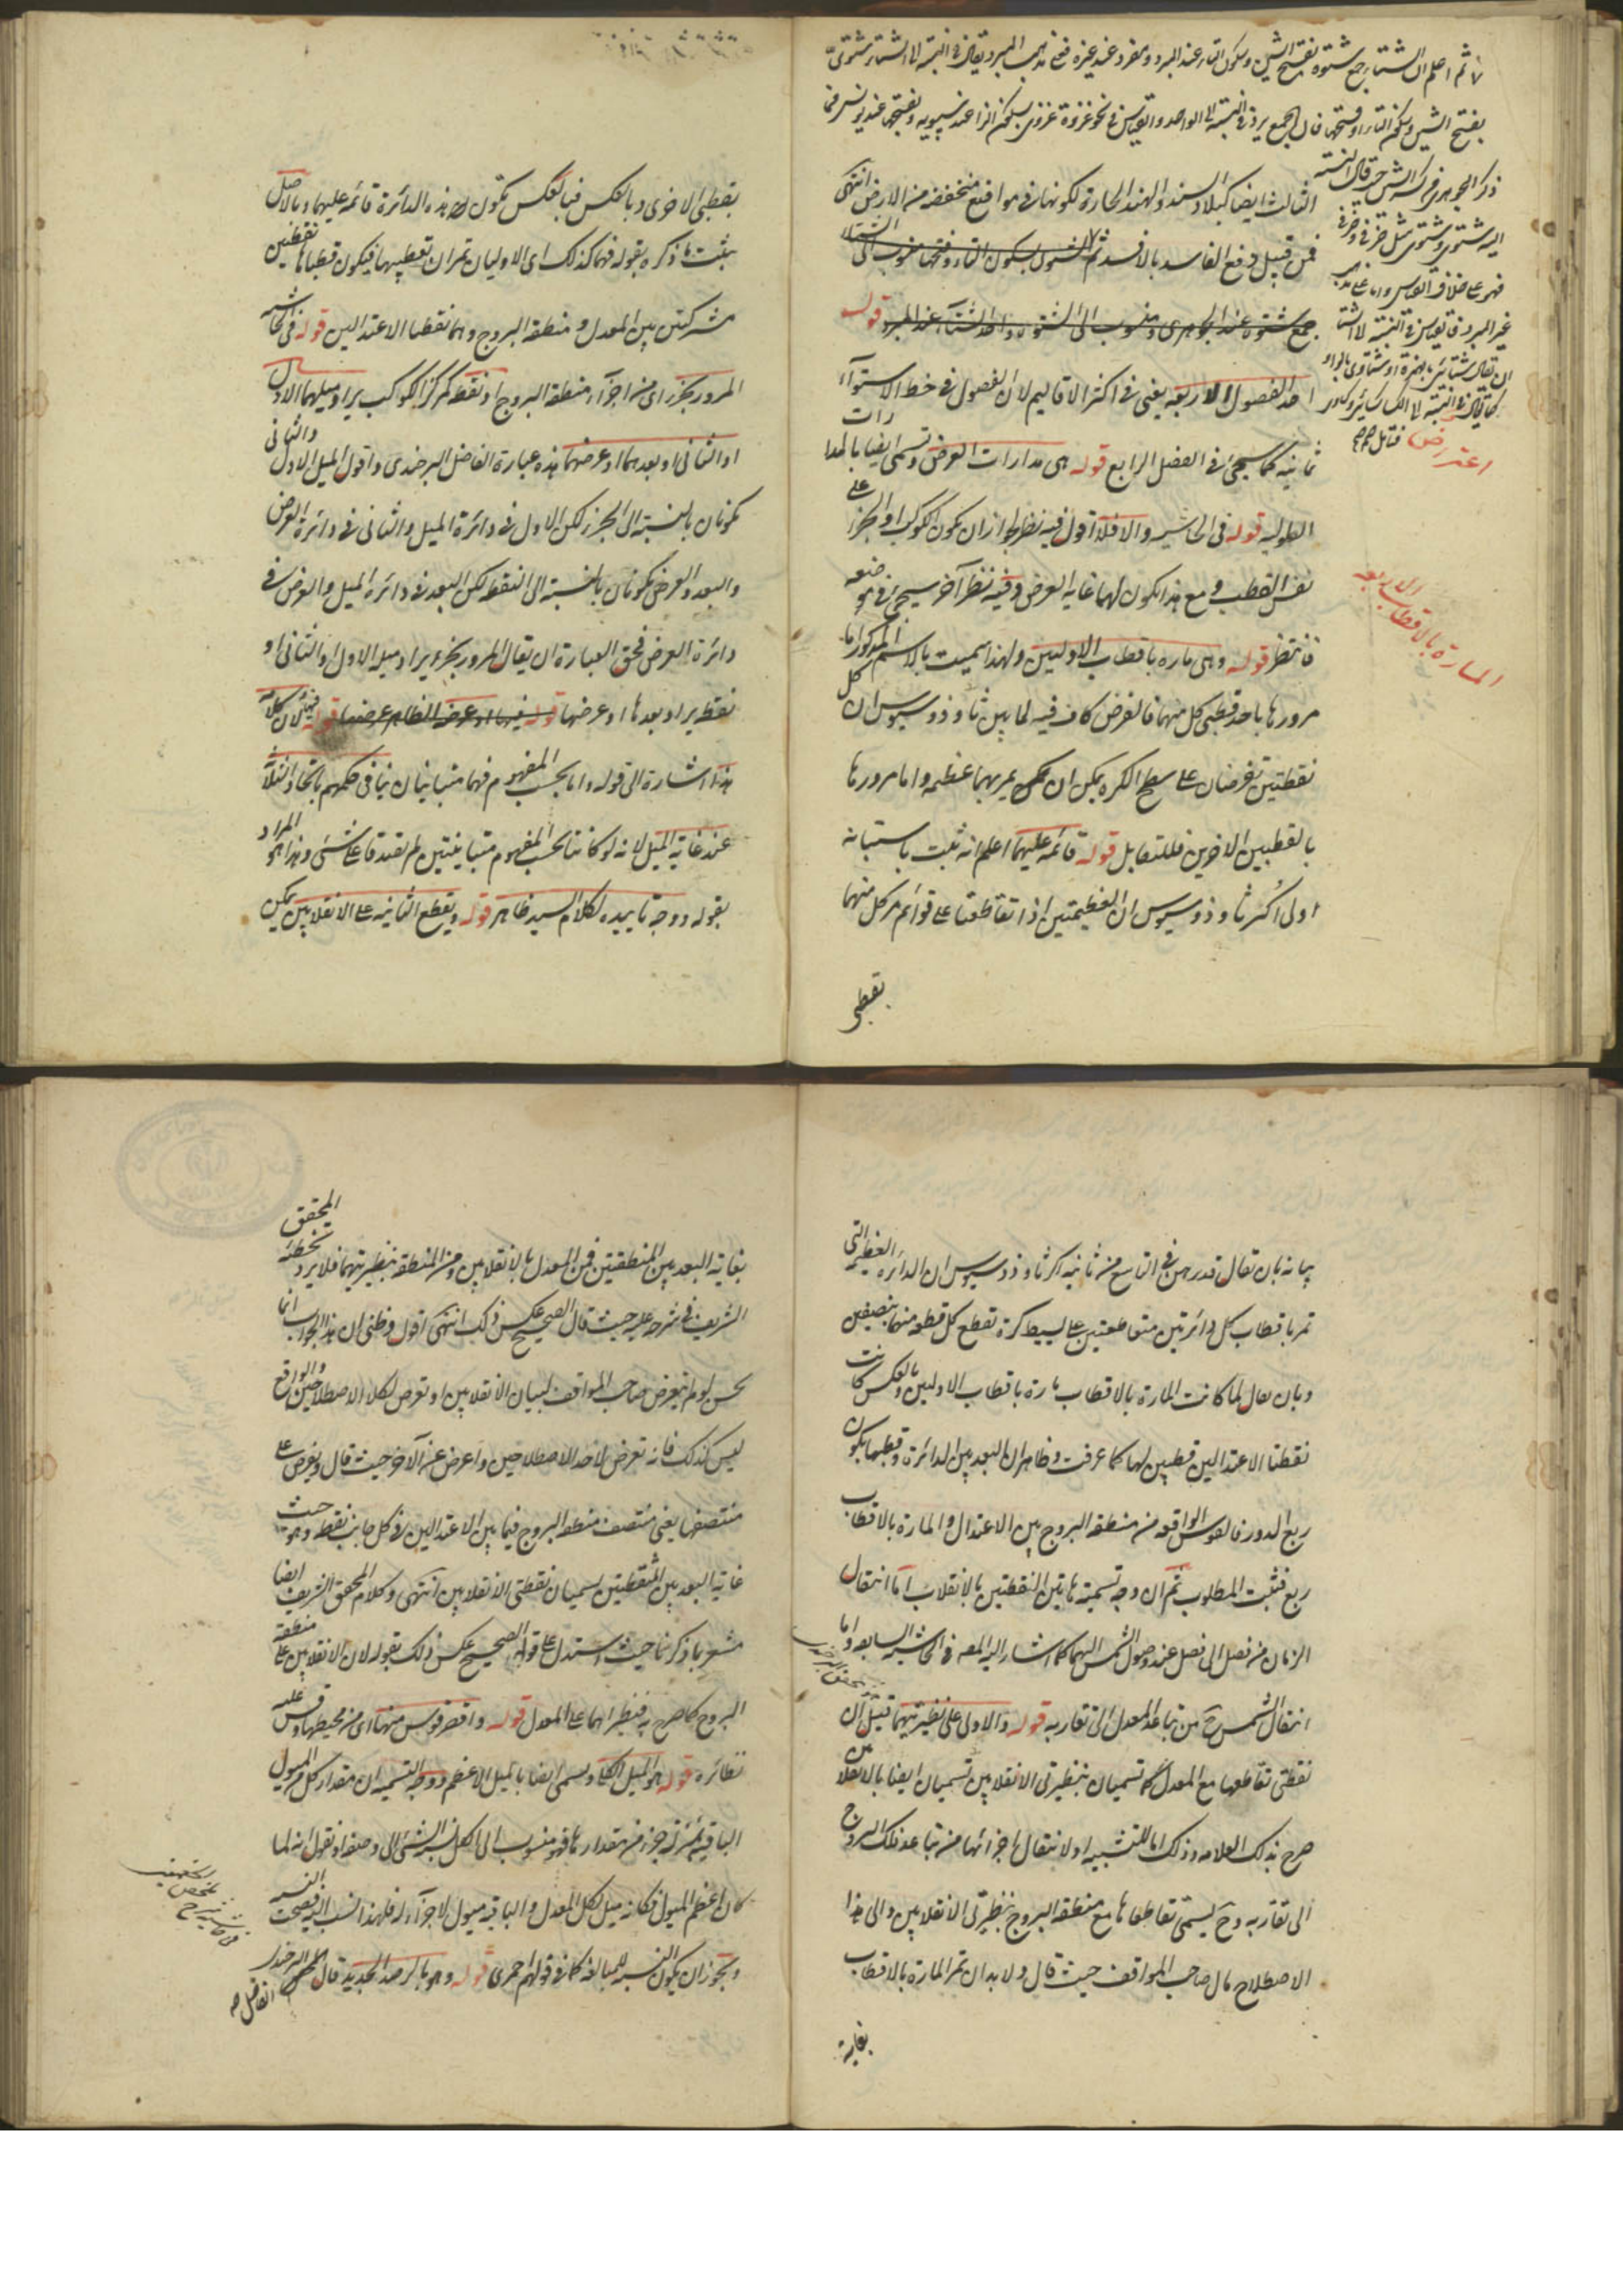 ثم اعلم ان الشتاء جمع شتوة بفتح الشين وسكون التاء عند المبرد ومفرد عند غيره فعلى مذهب المبرد يقال فى النسبة الى الشتاء شتوى
بفتح الشين وسكون التاء او فتحها فان الجمع يرد فى النسبة الى الواحد والقياس فى نحو غزوة غزوى بسكون الزاء عند سيبويه وبفتحها عند يونس فما
ذكر الجوهرى فى كسر الشين حيث قال النسبة
اليه شتوى وشتوى مثل خرفى وخرفى
فهو على خلاف القياس واما على مذهب
غير المبرد فالقياس فى النسبة الى الشتاء
ان يقال شتائى بالهمزة او شتاوى بالواو
كما يقال فى النسبة الى الكساء كسائى وكساوى
اعتراض فتأمل
الثالث ايضا كبلاد السند والهند الحارة لكونها فى مواقع منخفضة من الارض انتهى
فمن قبيل دفع الفاسد بالافسد ثم الشتوى بسكون التاء وفتحها منسوب الى الشتاء
جمع شتوة عند الجوهرى ومنسوب الى الشتوة واحد الشتاء عند المبرد قوله
احد الفصول الاربعة يعنى فى اكثر الاقاليم لان الفصول فى خط الاستواء
ثمانية كما سيجئ فى الفصل الرابع قوله هى مدارات العرض وتسمى ايضا بالمدارات
الطولية قوله فى الحاشية والا فلا اقول فيه نظر لجواز ان يكون الكوكب او الجزء على
نفس القطب ومع هذا يكون لهما غاية العرض وفيه نظر آخر سيجئ فى موضعه
فانتظر قوله وهى مارة باقطاب الاوليين ولهذا سميت بالاسم المذكور اما
المارة بالاقطاب الاربعة
مرورها باحد قطبى كل منهما فالفرض كاف فيه لما بين ثاوذوسيوس ان كل
نقطتين تفرضان على سطح الكرة يمكن ان يمر بهما عظيمة واما مرورها
بالقطبين الاخرين فللتقابل قوله قائمة عليهما اعلم انه ثبت باستبانة
اولى اكر ثاوذوسيوس ان العظيمتين اذا تقاطعتا على قوائم مر كل منهما
بقطبى
بقطبى الاخرى وبالعكس فبالعكس تكون هذه الدائرة قائمة عليهما وبالاصل
يثبت ما ذكره بقوله فهما كذلك اى الاوليان تمران بقطبيها فيكون قطباها نقطتين
مشتركتين بين المعدل ومنطقة البروج وهما نقطتا الاعتدالين قوله فى الحاشية
المرور بجزء اى من اجزاء منطقة البروج او نقطة كمركز الكوكب يراد ميلهما الاول
او الثانى او بعدهما او عرضهما هذه عبارة الفاضل البرجندى واقول الميل الاول والثانى
يكونان بالنسبة الى الجزء لكن الاول فى دائرة الميل والثانى فى دائرة العرض
والبعد والعرض يكونان بالنسبة الى النقطة لكن البعد فى دائرة الميل والعرض فى
دائرة العرض فحق العبارة ان يقال المرور بجزء يراد ميله الاول او الثانى او
نقطة يراد بعدها او عرضها
هذا اشارة الى قوله واما بحسب المفهوم فهما متباينان ينافى حكمهم باتحاد الثلاث
عند غاية الميل لانه لو كانتا بحسب المفهوم متباينتين لم تصدقا على شئ وهذا هو المراد
بقوله ووجه تأييده لكلام السيد ظاهر قوله ويقطع الثانية على الانقلابين يمكن
بيانه بان يقال قد برهن فى التاسع من ثانية اكر ثاوذوسيوس ان الدائرة العظيمة التى
تمر باقطاب كل دائرتين متقاطعتين على بسيط كرة تقطع كل قطعة منهما بنصفين
وبان يقال لما كانت المارة بالاقطاب مارة باقطاب الاوليين وبالعكس كانت
نقطتا الاعتدالين قطبين لها كما عرفت وظاهر ان البعد بين الدائرة وقطبها يكون
ربع الدور فالقوس الواقعة من منطقة البروج بين الاعتدال والمارة بالاقطاب
ربع فثبت المطلوب ثم ان وجه تسمية هاتين النقطتين بالانقلاب اما انتقال
الزمان من فصل الى فصل عند وصول الشمس اليهما كما اشار اليه المص فى الحاشية السابعة واما
انتقال الشمس ح من تباعد المعدل الى تقاربه قوله والاولى على نظيرتيهما قيل ان
نقطتى تقاطعها مع المعدل كما تسميان بنظيرتى الانقلابين تسميان ايضا بالانقلابين
صرح بذلك العلامة وذلك اما للتشبيه او لانتقال اجزائها من تباعد فلك البروج
الى تقاربه وح يسمى تقاطعاها مع منطقة البروج بنظيرتى الانقلابين والى هذا
الاصطلاح مال صاحب المواقف حيث قال ولا بد ان تمر المارة بالاقطاب
بغاية
بغاية البعد بين المنطقتين فمن المعدل بالانقلابين ومن المنطقة بنظيرتيهما فلا يرد تخطئة المحقق
الشريف فى شرحه عليه حيث قال الصحيح عكس ذلك انتهى اقول وظنى ان هذا الجواب انما
يحسن لو لم يتعرض صاحب المواقف لبيان الانقلابين او تعرض لكلا الاصطلاحين والواقع
ليس كذلك فانه تعرض لاحد الاصطلاحين واعرض عن الآخر حيث قال ويفرض على
منتصفها يعنى منتصف منطقة البروج فيما بين الاعتدالين فى كل جانب نقطة وهو حيث
غاية البعد بين المنطقتين تسميان نقطتى الانقلابين انتهى وكلام المحقق الشريف ايضا
مشعر بما ذكرنا حيث استدل على قوله الصحيح عكس ذلك بقوله لان الانقلابين على منطقة
البروج كما صرح به فنظيراهما على المعدل قوله واقصر قوس منها اى من محيطها وقس عليه
نظائره قوله هو الميل الكلى ويسمى ايضا بالميل الاعظم ووجه التسمية ان مقدار كل من الميول
الباقية بمنزلة جزء من مقدارها فهو منسوب الى الكل نسبة الشئ الى وصفه او نقول انه لما
كان اعظم الميول فكانه ميل لكل المعدل والباقية ميول لاجزائه فلهذا نسب اليه فصحت النسبة
ويجوز ان يكون النسبة للمبالغة كما فى قولهم احمرى قوله وهو بالرصد الجديد قال الفاضل البرجندى